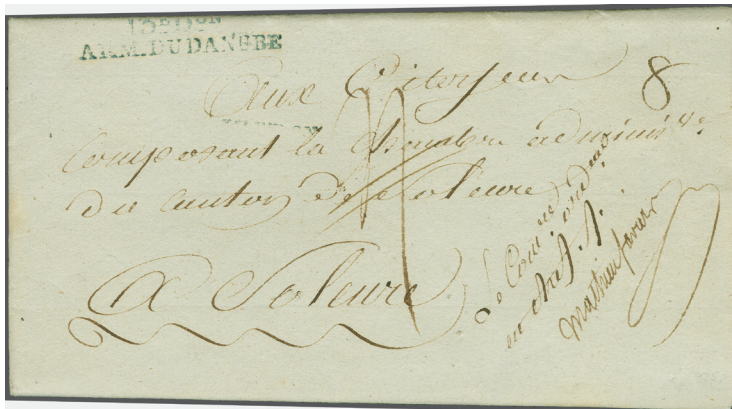 13E DON
ARM. DU DANUBE
Aux Citoyens 8
Composant la Chambre administve
du canton de Soleure
A Soleure
Le Comre ordeur
en chef
Mathieu Favier